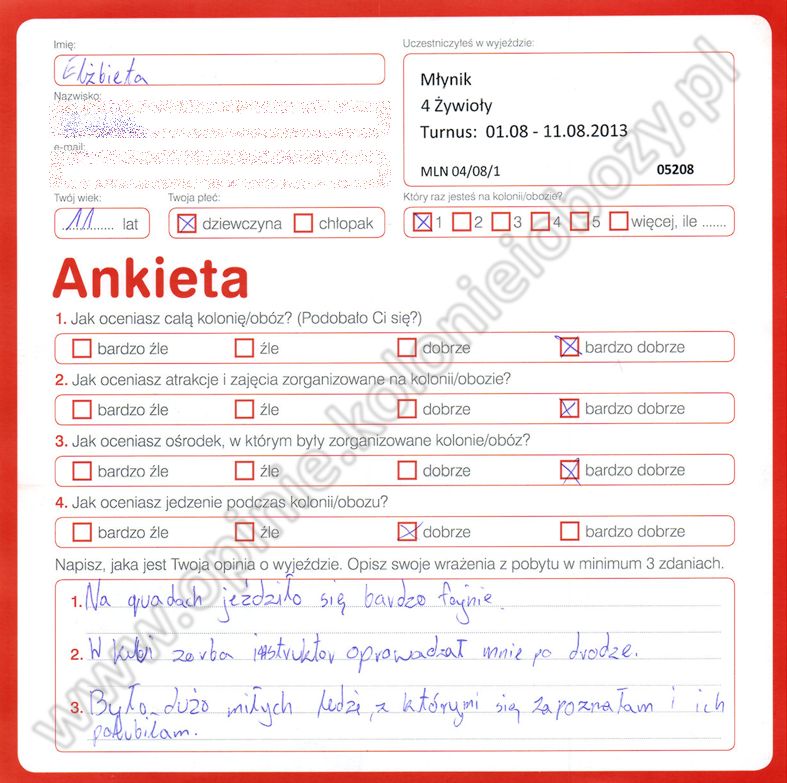 Imię:
Elżbieta
Uczestniczyłeś w wyjeździe:
Młynik
4 Żywioły
Turnus: 01.08 - 11.08.2013
MLN 04/08/1 05208
Nazwisko:
e-mail:
Twój wiek:
11 lat
Twoja płeć:
dziewczyna chłopak
Który raz jesteś na kolonii/obozie?
1 2 3 4 5 więcej, ile .......
Ankieta
1. Jak oceniasz całą kolonię/obóz? (Podobało Ci się?)
bardzo źle źle dobrze bardzo dobrze
2. Jak oceniasz atrakcje i zajęcia zorganizowane na kolonii/obozie?
bardzo źle źle dobrze bardzo dobrze
3. Jak oceniasz ośrodek, w którym były zorganizowane kolonie/obóz?
bardzo źle źle dobrze bardzo dobrze
4. Jak oceniasz jedzenie podczas kolonii/obozu?
bardzo źle źle dobrze bardzo dobrze
Napisz, jaka jest Twoja opinia o wyjeździe. Opisz swoje wrażenia z pobytu w minimum 3 zdaniach.
1. Na quadach jeździło się bardzo fajnie.
2. W zorba instruktor oprowadzał mnie po drodze.
3. Było dużo miłych ludzi, z którymi się zapoznałam i ich
polubiłam.
www.opinie.kolonieiobozy.pl